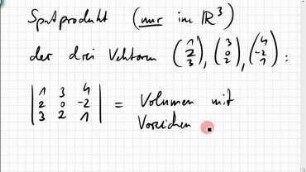 Spatprodukt (nur im ℝ³)
der drei Vektoren (1 2 3), (3 0 2), (4 -2 1) :
| 1 3 4 |
| 2 0 -2 | = Volumen mit
| 3 2 1 | Vorzeichen